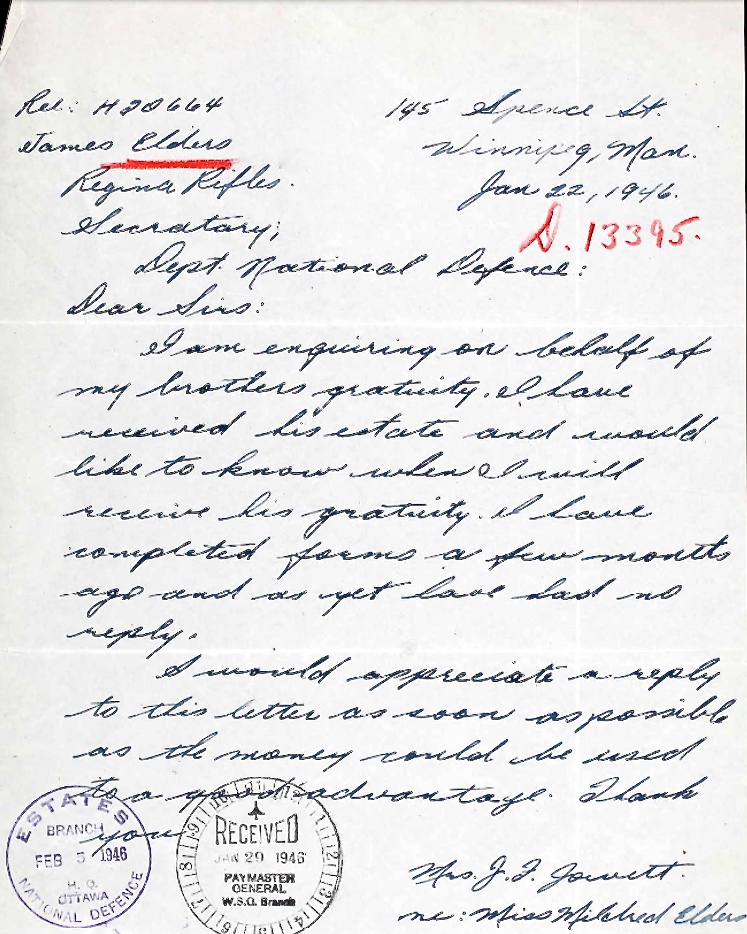 Re: H20664
James Elders
Regina Rifles.
145 Spence St.
Winnipeg, Man.
Jan 22, 1946.
D. 13395.
Secratary;
Dept. National Defence:
Dear Sirs:
I am enquiring on behalf of
my brothers gratuity. I have
received his estate and would
like to know when I will
receive his gratuity. I have
completed forms a few months
ago and as yet have had no
reply.
I would appreciate a reply
to this letter as soon as possible
as the money could be used
to a advantage. Thank
you
Mrs. J. F. Jowett.
ne: Miss Mildred Elders
ESTATES
BRANCH
FEB 5 1946
H. Q.
OTTAWA
NATIONAL DEFENCE
RECEIVED
JAN 29 1946
PAYMASTER
GENERAL
W.S.G. Branch